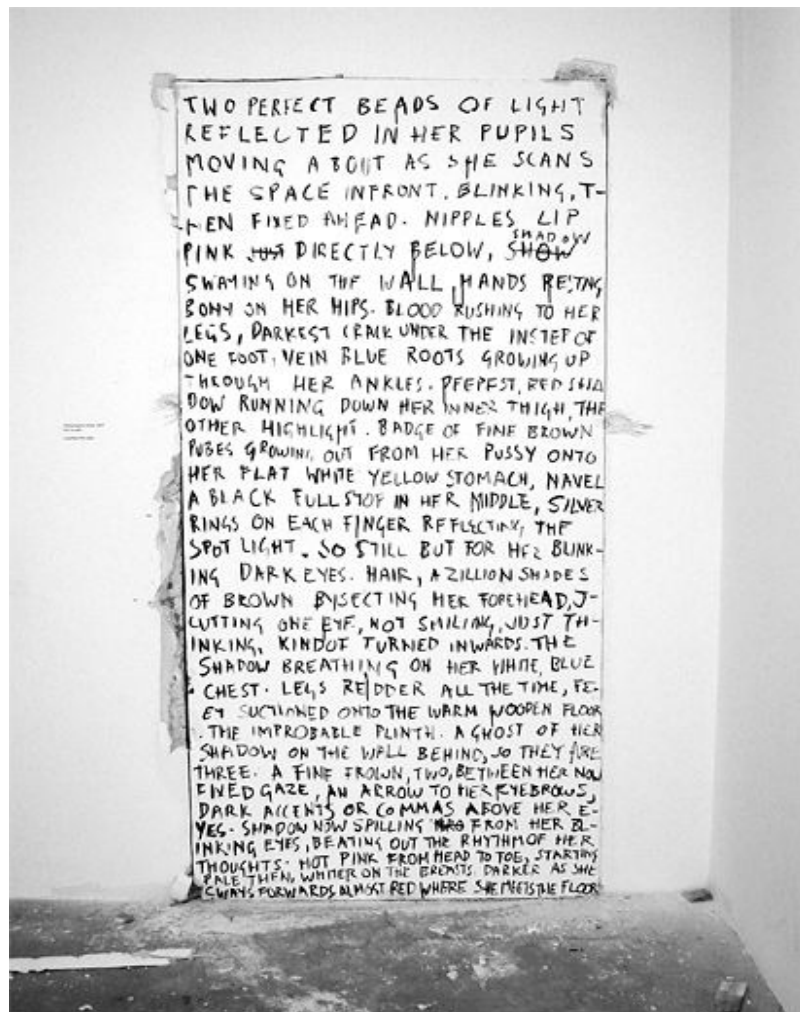 TWO PERFECT BEADS OF LIGHT
REFLECTED IN HER PUPILS
MOVING ABOUT AS SHE SCANS
THE SPACE INFRONT. BLINKING, T-
HEN FIXED AHEAD. NIPPLES LIP
PINK JUST DIRECTLY BELOW, SHOW SHADOW
SWAYING ON THE WALL, HANDS RESTING
BONY ON HER HIPS. BLOOD RUSHING TO HER
LEGS, DARKEST CRACK UNDER THE INSTEP OF
ONE FOOT, VEIN BLUE ROOTS GROWING UP
THROUGH HER ANKLES. DEEPEST, RED SHA
DOW RUNNING DOWN HER INNER THIGH, THE
OTHER HIGHLIGHT. BADGE OF FINE BROWN
PUBES GROWING OUT FROM HER PUSSY ONTO
HER FLAT WHITE YELLOW STOMACH, NAVEL
A BLACK FULLSTOP IN HER MIDDLE, SILVER
RINGS ON EACH FINGER REFLECTING THE
SPOT LIGHT. SO STILL BUT FOR HER BLINK-
ING DARK EYES. HAIR, A ZILLION SHADES
OF BROWN BYSECTING HER FOREHEAD, J-
CUTTING ONE EYE, NOT SMILING, JUST TH-
INKING, KINDOF TURNED INWARDS. THE
SHADOW BREATHING ON HER WHITE, BLUE
CHEST. LEGS REDDER ALL THE TIME, FE-
ET SUCTIONED ONTO THE WARM WOODEN FLOOR
. THE IMPROBABLE PLINTH. A GHOST OF HER
SHADOW ON THE WALL BEHIND, SO THEY ARE
THREE. A FINE FROWN, TWO, BETWEEN HER NOW
FIXED GAZE, AN ARROW TO HER EYEBROWS,
DARK ACCENTS OR COMMAS ABOVE HER E-
YES. SHADOW NOW SPILLING FROM HER BL-
INKING EYES, BEATING OUT THE RHYTHM OF HER
THOUGHTS. HOT PINK FROM HEAD TO TOE, STARTING
PALE THEN, WHITER ON THE BREASTS. DARKER AS SHE
SWAYS FORWARDS ALMOST RED WHERE SHE MEETS THE FLOOR